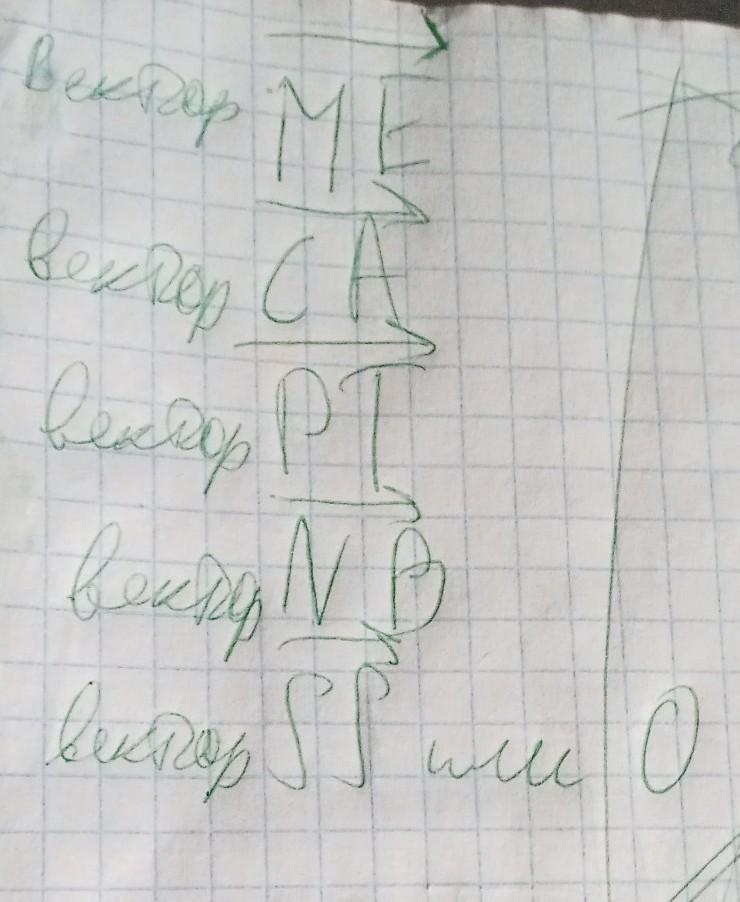 вектор ME
вектор CA
вектор PT
вектор NB
вектор SS или 0